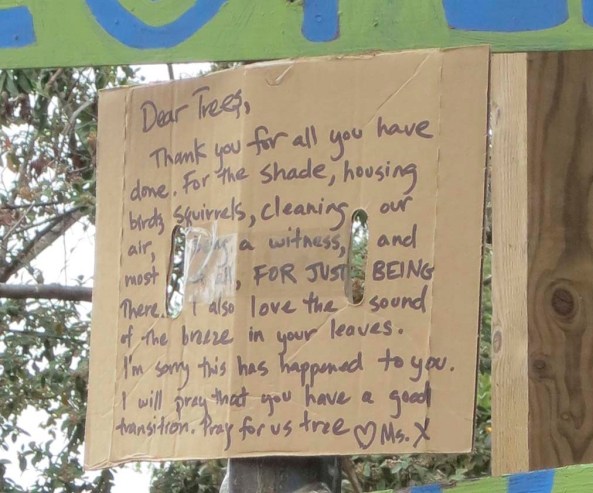 Dear Trees,
Thank you for all you have
done. For the shade, housing
birds, squirrels, cleaning our
air, a witness, and
most of all, FOR JUST BEING
There. I also love the sound
of the breeze in your leaves.
I'm sorry this has happened to you.
I will pray that you have a good
transition. Pray for us tree ♡ Ms. X